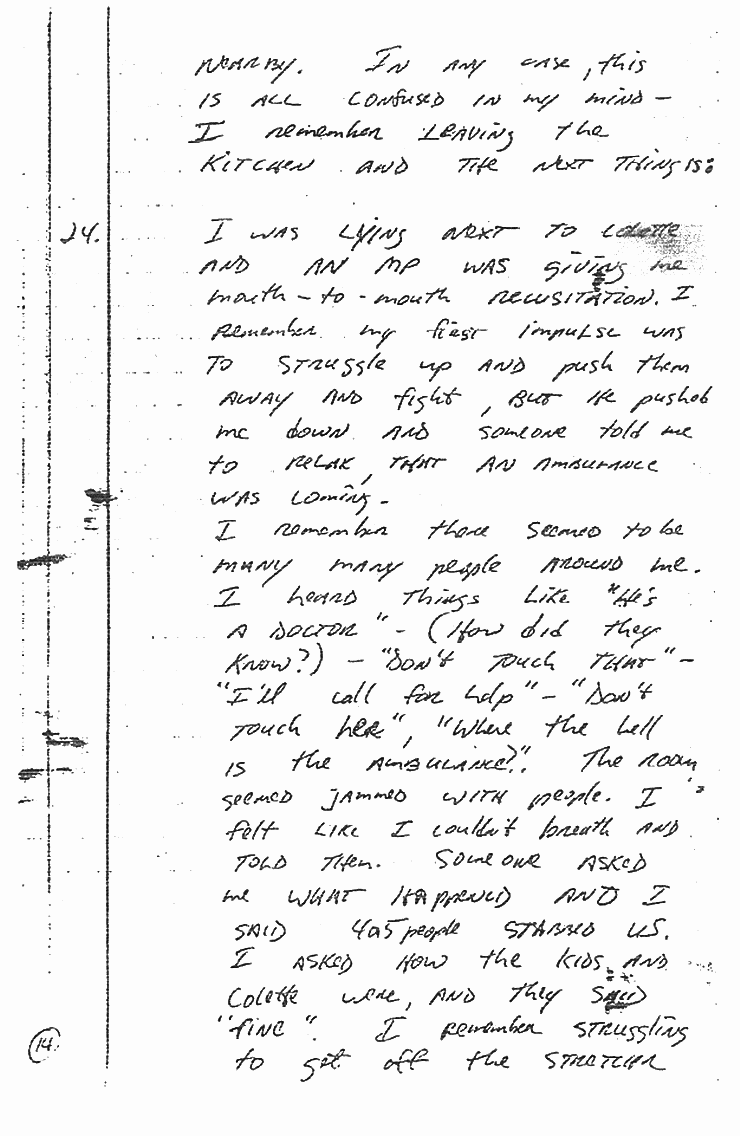 NEARBY. IN ANY CASE, this
IS ALL CONFUSED IN my mIND –
I remember LEAVING the
KITCHEN AND THE NEXT THING IS:
24. I WAS LYING NEXT TO Colette
AND AN MP WAS GIVING me
mouth – to – mouth RECUSITATION. I
Remember my first impulse WAS
TO STRUGGle up AND push them
AWAY AND fight, BUT He pushed
me down AND someone told me
to RELAX, THAT AN AmBULANCE
WAS Coming.
I remember there seemed to be
mANY mANY people AROUND me.
I heard THINGS LIKE "He's
A DOCTOR" – (How did they
KNOW?) – "DON'T TOUCH THAT" –
"I'll call for help" – "Don't
TOUCH her", "Where the hell
IS the AMBULANCE?". The ROOM
seemed jAMMED WITH people. I
felt LIKE I couldn't breath AND
TOLD THEM. Someone ASKED
me WHAT HAPPENED AND I
SAID 4or5 people STABBED US.
I ASKED HOW the KIDS AND
Colette were, AND they SAID
"fINE". I remember STRUGGling
to get off the STRETCHER
14.